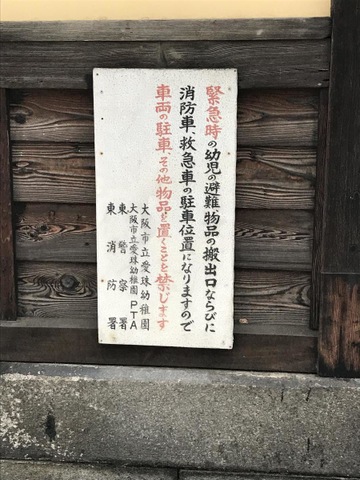 緊急時の幼児の避難物品の搬出口ならびに
消防車、救急車の駐車位置になりますので
車両の駐車、その他物品を置くことを禁じます
大阪市立愛珠幼稚園
大阪市立愛珠幼稚園PTA
東警察署
東消防署